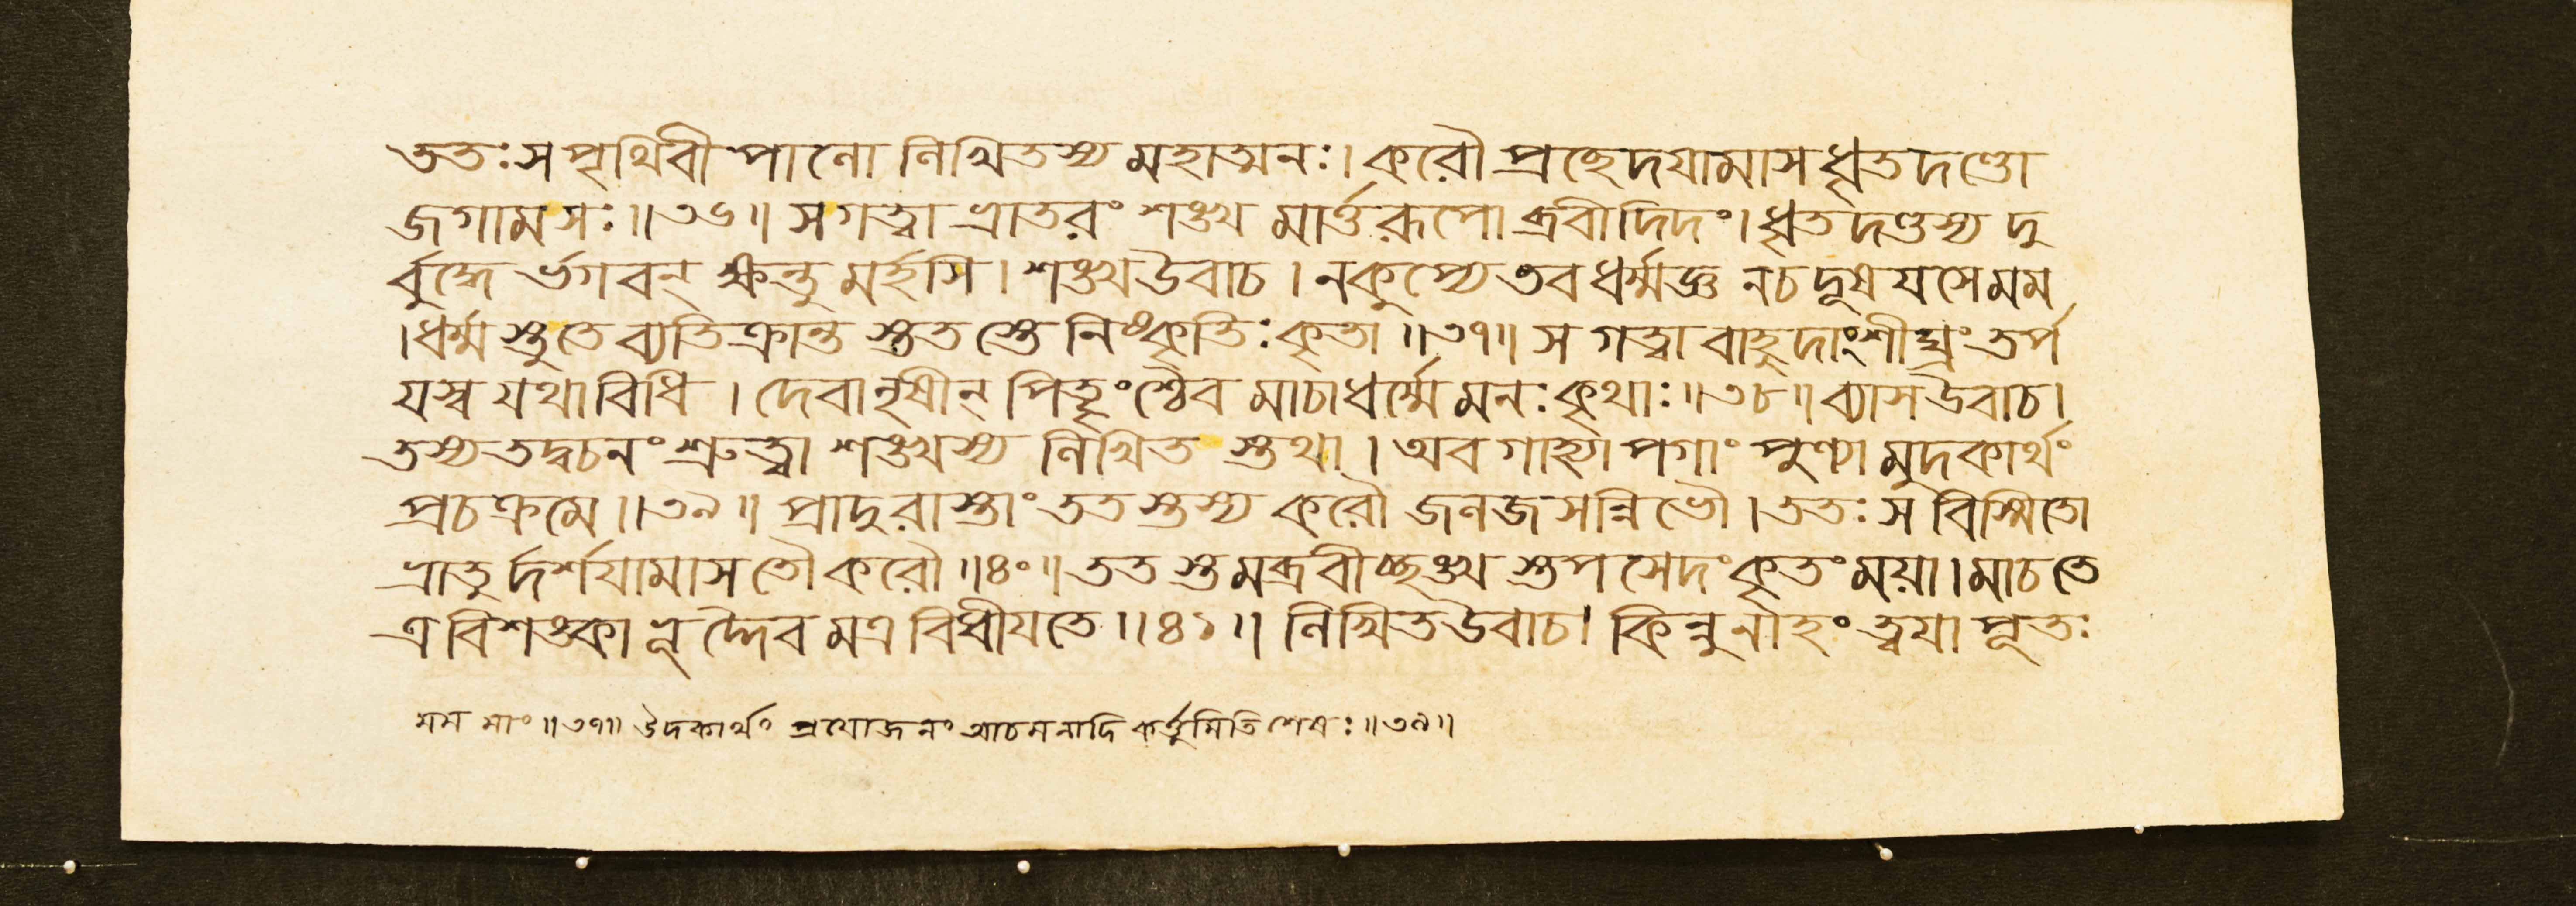 ততঃ স পৃথিবীপালো লিখিতস্য মহাত্মনঃ। করৌ প্রচ্ছেদয়ামাস ধৃতদণ্ডো
জগাম সঃ॥৩৬॥ স গত্বা ভ্রাতরং শঙ্খমার্ত্তরূপোব্রবীদিদং। ধৃতদণ্ডস্য দু
র্বুদ্ধের্ভগবন্ ক্ষন্তুমর্হসি। শঙ্খ উবাচ। ন কুপ্যে তব ধর্ম্মজ্ঞ ন চ দূষয়সে মম
। ধর্ম্মস্তু তে ব্যতিক্রান্তস্ততস্তে নিষ্কৃতিঃ কৃতা॥৩৭॥ স গত্বা বাহুদাং শীঘ্রং তর্প
যস্ব যথাবিধি। দেবানৃষীন্ পিতৄংশ্চৈব মা চাধর্ম্মে মনঃ কৃথাঃ॥৩৮॥ ব্যাস উবাচ।
তস্য তদ্বচনং শ্রুত্বা শঙ্খস্য লিখিতস্তথা। অবগাহ্যাপগাং পুণ্যামুদকার্থং
প্রচক্রমে॥৩৯॥ প্রাদুরাস্তাং ততস্তস্য করৌ জলজসন্নিভৌ। ততঃ স বিস্মিতো
ভ্রাতুর্দর্শয়ামাস তৌ করৌ॥৪০॥ ততস্তমব্রবীচ্ছঙ্খস্তপসেদং কৃতং ময়া। মা চ তে
ত্র বিশঙ্কা ভূদ্দৈবমত্র বিধীয়তে॥৪১॥ লিখিত উবাচ। কিন্নু নাহং ত্বয়া পূতঃ
মম মাং॥৩৭॥ উদকার্থং প্রয়োজনং আচমনাদি কর্ত্তুমিতি শেষঃ॥৩৯॥